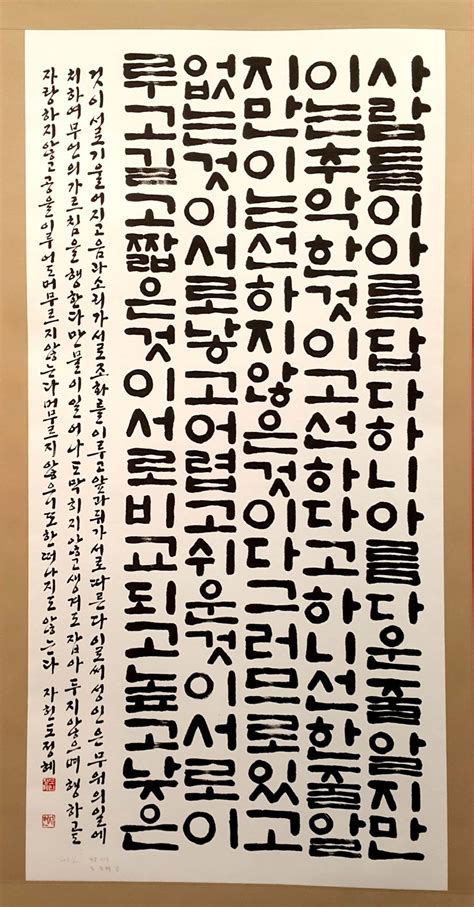 사람들이아름답다하니아름다운줄알지만
이는추악한것이고선하다고하니선한줄알
지만이는선하지않은것이다그러므로있고
없는것이서로낳고어렵고쉬운것이서로이
루고길고짧은것이서로비교되고높고낮은
것이서로기울어지고음과소리가서로조화를이루고앞과뒤가서로따른다이로써성인은무위의일에
처하여무언의가르침을행한다만물이일어나도막히지않고생겨도잡아두지않으며행하고도
자랑하지않고공을이루어도머무르지않는다머무르지않으니또한떠나지도않는다 도정혜